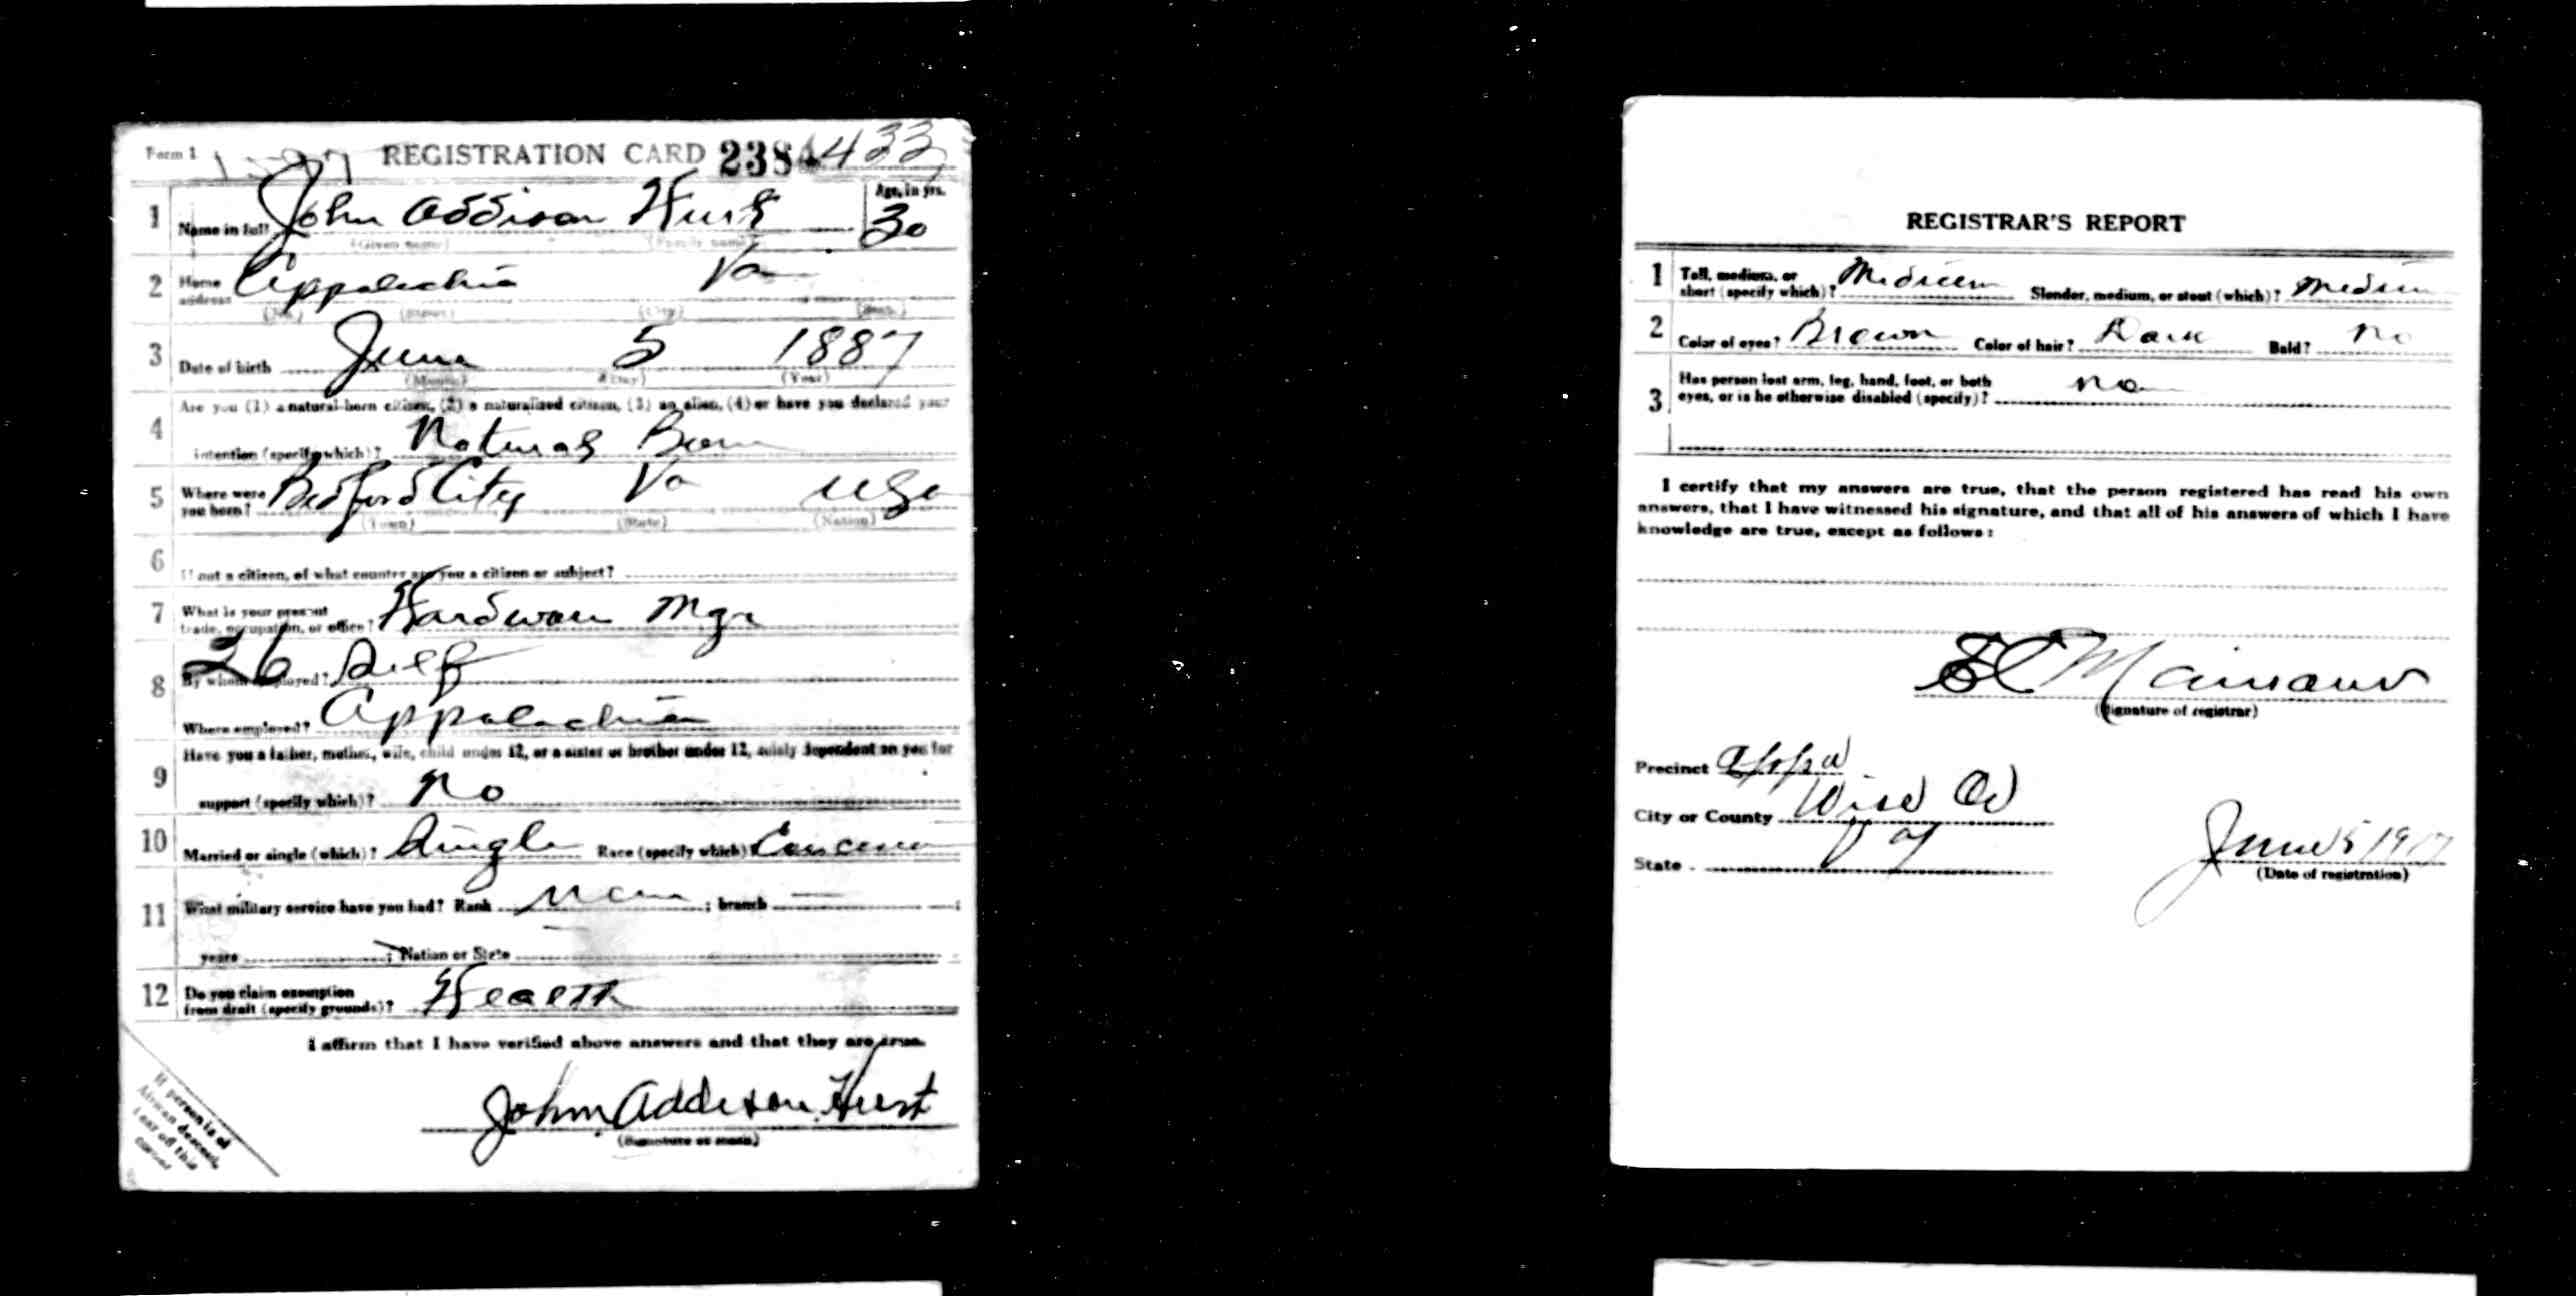 Form 1 REGISTRATION CARD 2384 433
1 Name in full John Addison Hurst Age, in yrs. 30
(Given name) (Family name)
2 Home address Appalachia Va
(No.) (Street) (City) (State)
3 Date of birth June 5 1887
(Month) (Day) (Year)
Are you (1) a natural-born citizen, (2) a naturalized citizen, (3) an alien, (4) or have you declared your
4 intention (specify which)? Natural Born
5 Where were you born? Bedford City Va USA
(Town) (State) (Nation)
6 If not a citizen, of what country are you a citizen or subject?
7 What is your present trade, occupation, or office? Hardware Mgr
26
8 By whom employed? Self
Where employed? Appalachia
Have you a father, mother, wife, child under 12, or a sister or brother under 12, solely dependent on you for
9 support (specify which)? No
10 Married or single (which)? Single Race (specify which)?
11 What military service have you had? Rank None ; branch — ;
years ; Nation or State
12 Do you claim exemption from draft (specify grounds)? Health
I affirm that I have verified above answers and that they are true.
John Addison Hurst
(Signature or mark)
If person is of
African descent,
tear off this
corner
REGISTRAR'S REPORT
1 Tall, medium, or short (specify which)? Medium Slender, medium, or stout (which)? Medium
2 Color of eyes? Brown Color of hair? Dark Bald? No
3 Has person lost arm, leg, hand, foot, or both eyes, or is he otherwise disabled (specify)? No
I certify that my answers are true, that the person registered has read his own
answers, that I have witnessed his signature, and that all of his answers of which I have
knowledge are true, except as follows:
(Signature of registrar)
Precinct Appa
City or County Wise Co
State Va
June 5 1917
(Date of registration)